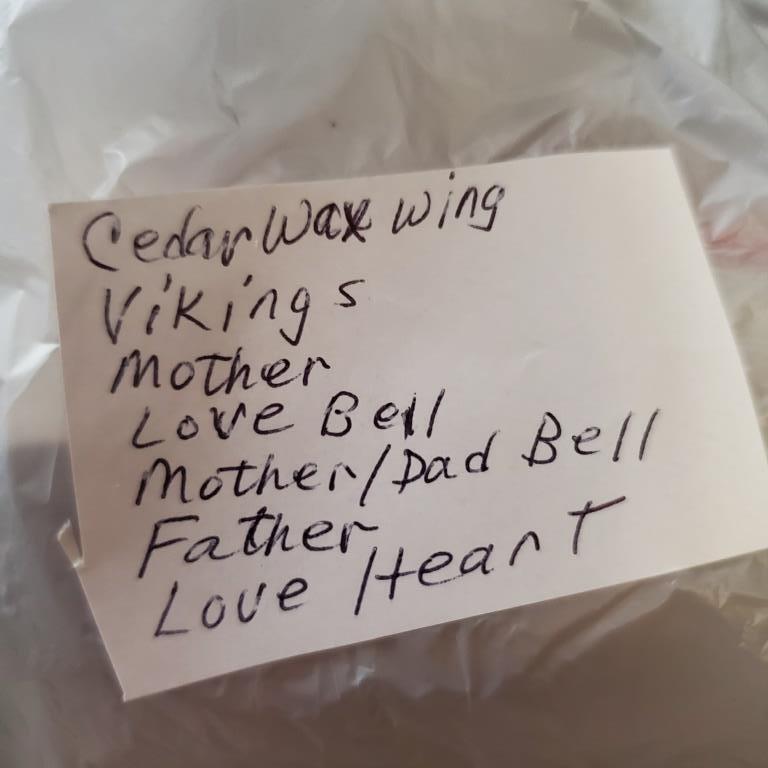 Cedar Wax wing
Vikings
Mother
Love Bell
Mother/Dad Bell
Father
Love Heart